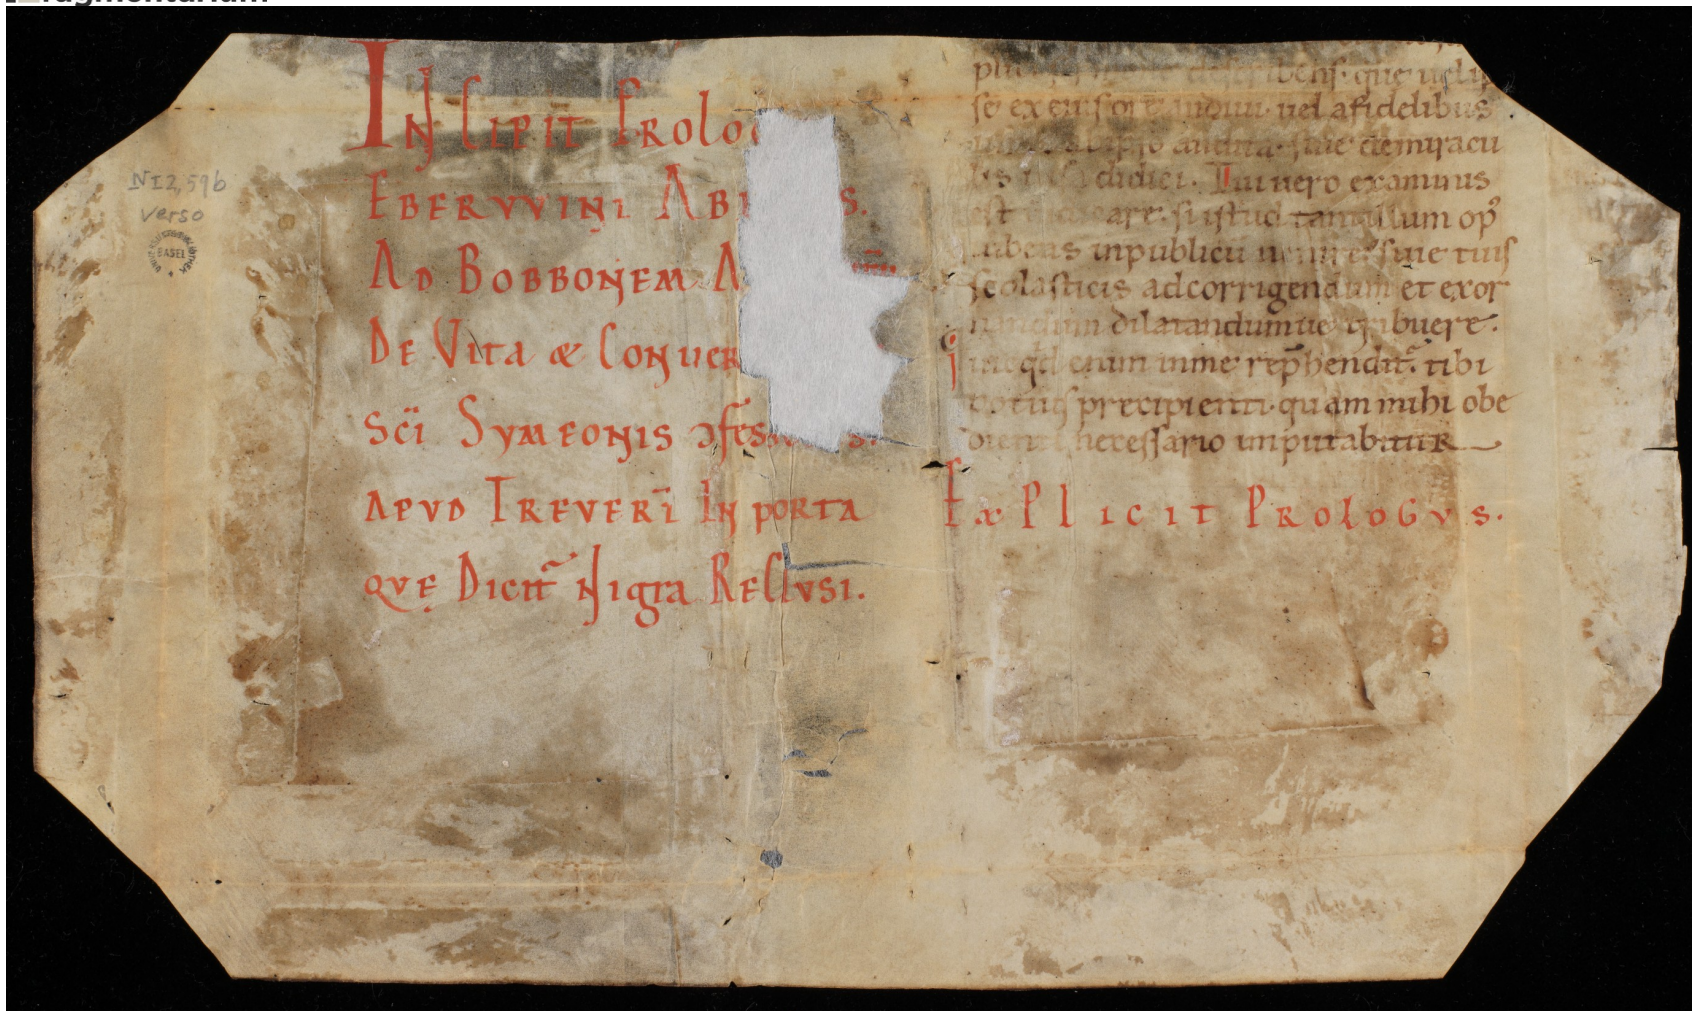 ragmentarium
NI 2, 59b
verso
UNIVERSITÄTSBIBLIOTHEK BASEL
INCIPIT PROLO
EBERVVINI AB S.
AD BOBBONEM A
DE VITA & CONVER
SCI SYMEONIS ɔfess s.
APVD TREVERĪ IN PORTA
QVĘ DICIT̄ NIGRA RECLVSI.
describens. que uel ip
se ex eius ore audiui. uel a fidelibus
audita. siue de miraculis
didici. Tui uero examinis
est si istud tantillum op
iubeas in publicū uenire. siue tuis
scolasticis ad corrigendum et exor
nandum dilatandum ue tribuere.
qd enim in me rep̄hendit̄. tibi
potius precipienti. quam mihi obe
dienti necessario imputabitur
EXPLICIT PROLOGVS.